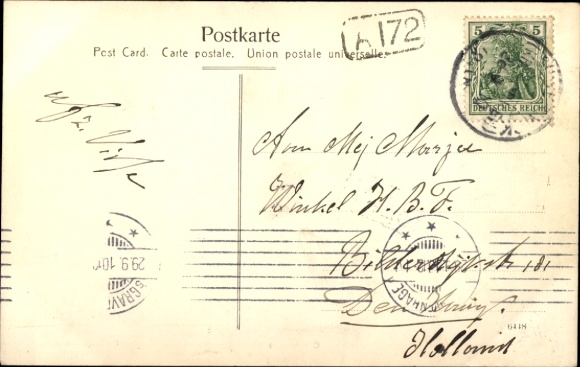 Postkarte
Post Card. Carte postale. Union postale universelle.
A 172
5 5
DEUTSCHES REICH
Aan Mej Marjee
Winkel H. B. F.
Bilderdijkstr 181
Den Haag.
Holland
29.9.10
6418